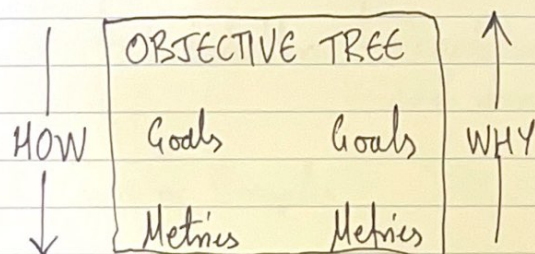 OBJECTIVE TREE
HOW Goals Goals WHY
Metrics Metrics